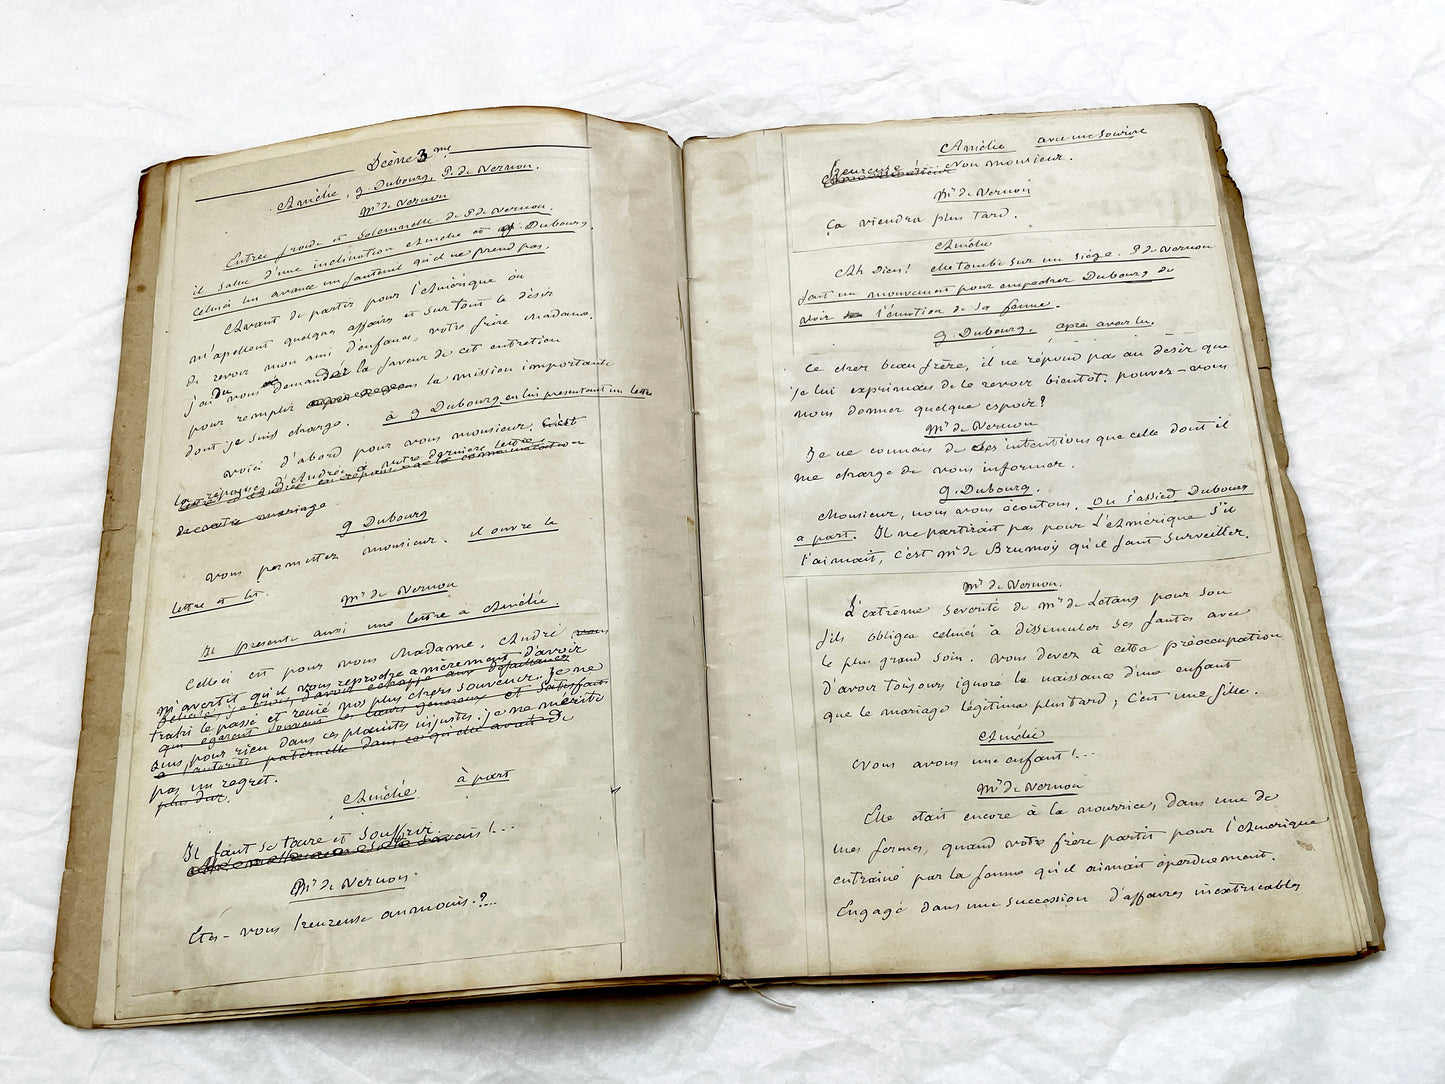 Scène 3me
Amélie, g. Dubourg, P. de Vernon.
Mr de Vernon
Entrée froide et solennelle de P. de Vernon,
il salue d'une inclination Amélie et g. Dubourg.
celui-ci lui avance un fauteuil qu'il ne prend pas.
Avant de partir pour l'Amérique où
m'apellent quelques affaires et surtout le désir
de revoir mon ami d'enfance, votre frère Madame,
j'ai dû vous demander la faveur de cet entretien
pour remplir la mission importante
dont je suis chargé. à g Dubourg en lui présentant un lettre
voici d'abord pour vous monsieur, c'est
la réponse d'André à votre dernière lettre,
de votre mariage
g Dubourg
Vous permettez monsieur. il ouvre la
lettre et lit.
Mr de Vernon
Il présente aussi une lettre à Amélie.
Celle-ci est pour vous Madame, André vous
m'avertit qu'il vous reproche amèrement d'avoir
trahi le passé et renié nos plus chers souvenirs. Je ne
qui égarent souvent les cœurs généreux et satisfait
suis pour rien dans ces plaintes injustes. je ne mérite
à l'autorité paternelle dans ce qu'elle avait de
pas un regret.
plus dur.
Amélie à part
Il faut se taire et souffrir
Mr de Vernon
Etes-vous heureuse au moins ?...
Amélie avec un sourire
heureuse !... Non monsieur.
Mr de Vernon
Ça viendra plus tard.
Amélie
Ah Dieu ! elle tombe sur un siège. P. de Vernon
fait un mouvement pour empêcher Dubourg de
voir l'émotion de sa femme.
g. Dubourg. après avoir lu,
Ce cher beau frère, il ne répond pas au désir que
je lui exprimais de le revoir bientôt. pouvez-vous
nous donner quelque espoir ?
Mr de Vernon
Je ne connais de ses intentions que celle dont il
me charge de vous informer.
g. Dubourg.
Monsieur, nous vous écoutons. On s'assied, Dubourg
à part. Il ne partirait pas pour l'Amérique s'il
l'aimait, c'est Mr de Brumoy qu'il faut surveiller.
Mr de Vernon.
L'extrême sévérité de Mr de Letang pour son
fils obligea celui-ci à dissimuler ses fautes avec
le plus grand soin. Vous devez à cette préoccupation
d'avoir toujours ignoré la naissance d'une enfant
que le mariage légitima plus tard ; c'est une fille.
Amélie
Nous avons une enfant !...
Mr de Vernon
Elle était encore à la nourrice, dans une de
mes fermes, quand votre frère partit pour l'Amérique
entrainé par la femme qu'il aimait éperduement.
Engagé dans une succession d'affaires inextricables